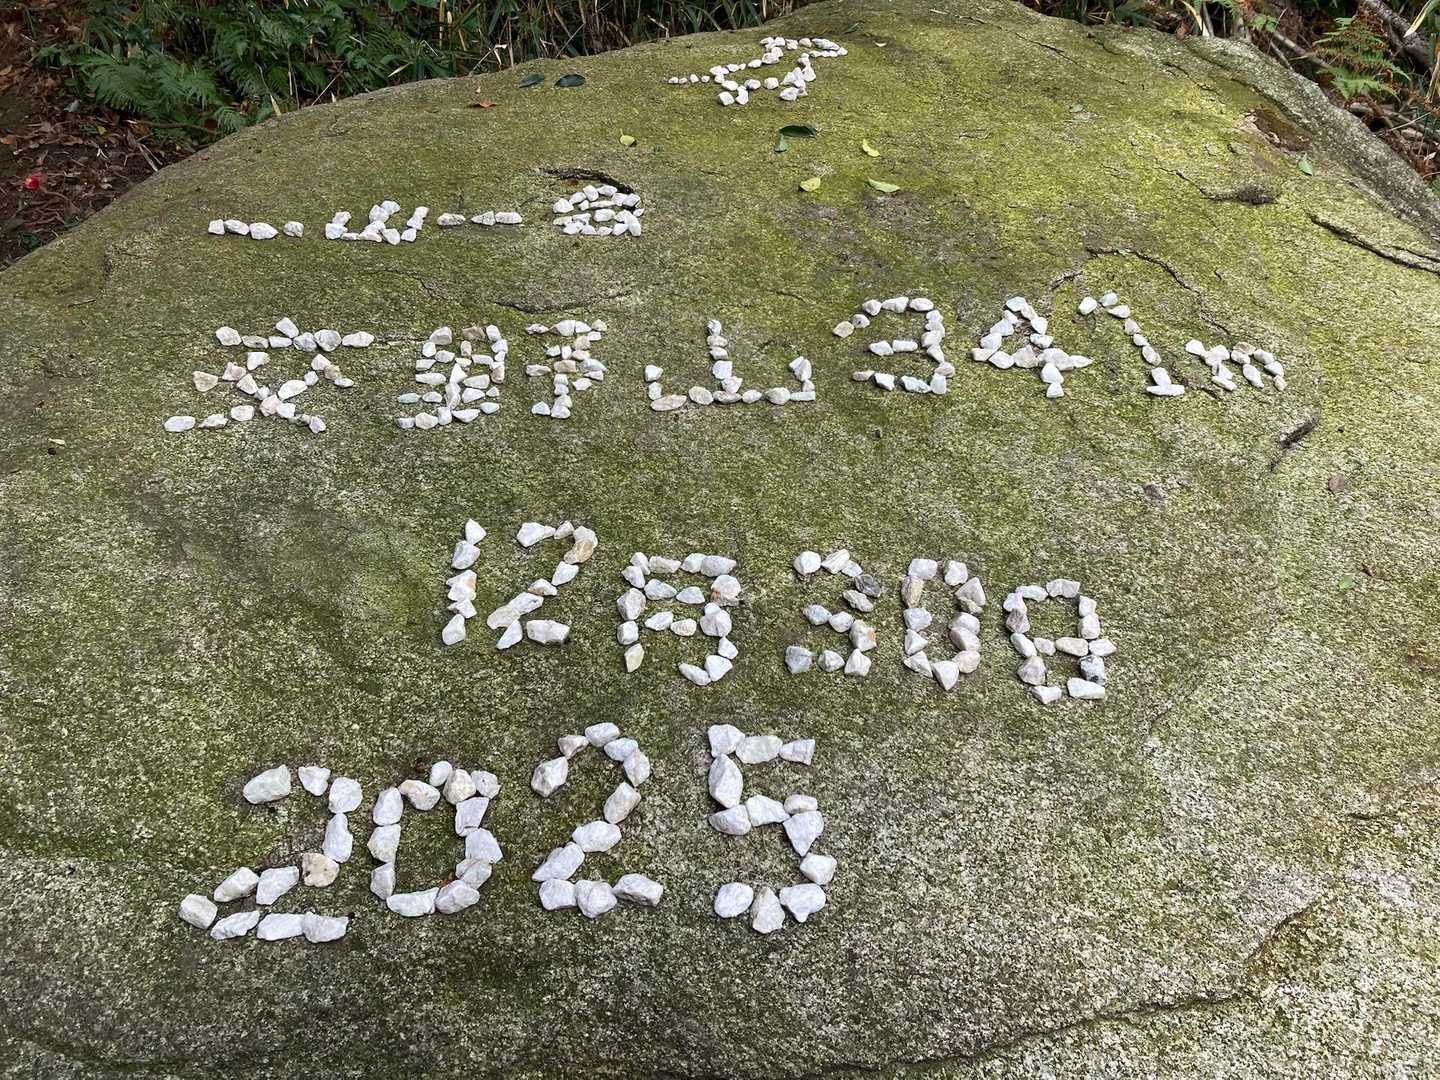 一山一会
交野山341m
12月30日
2025